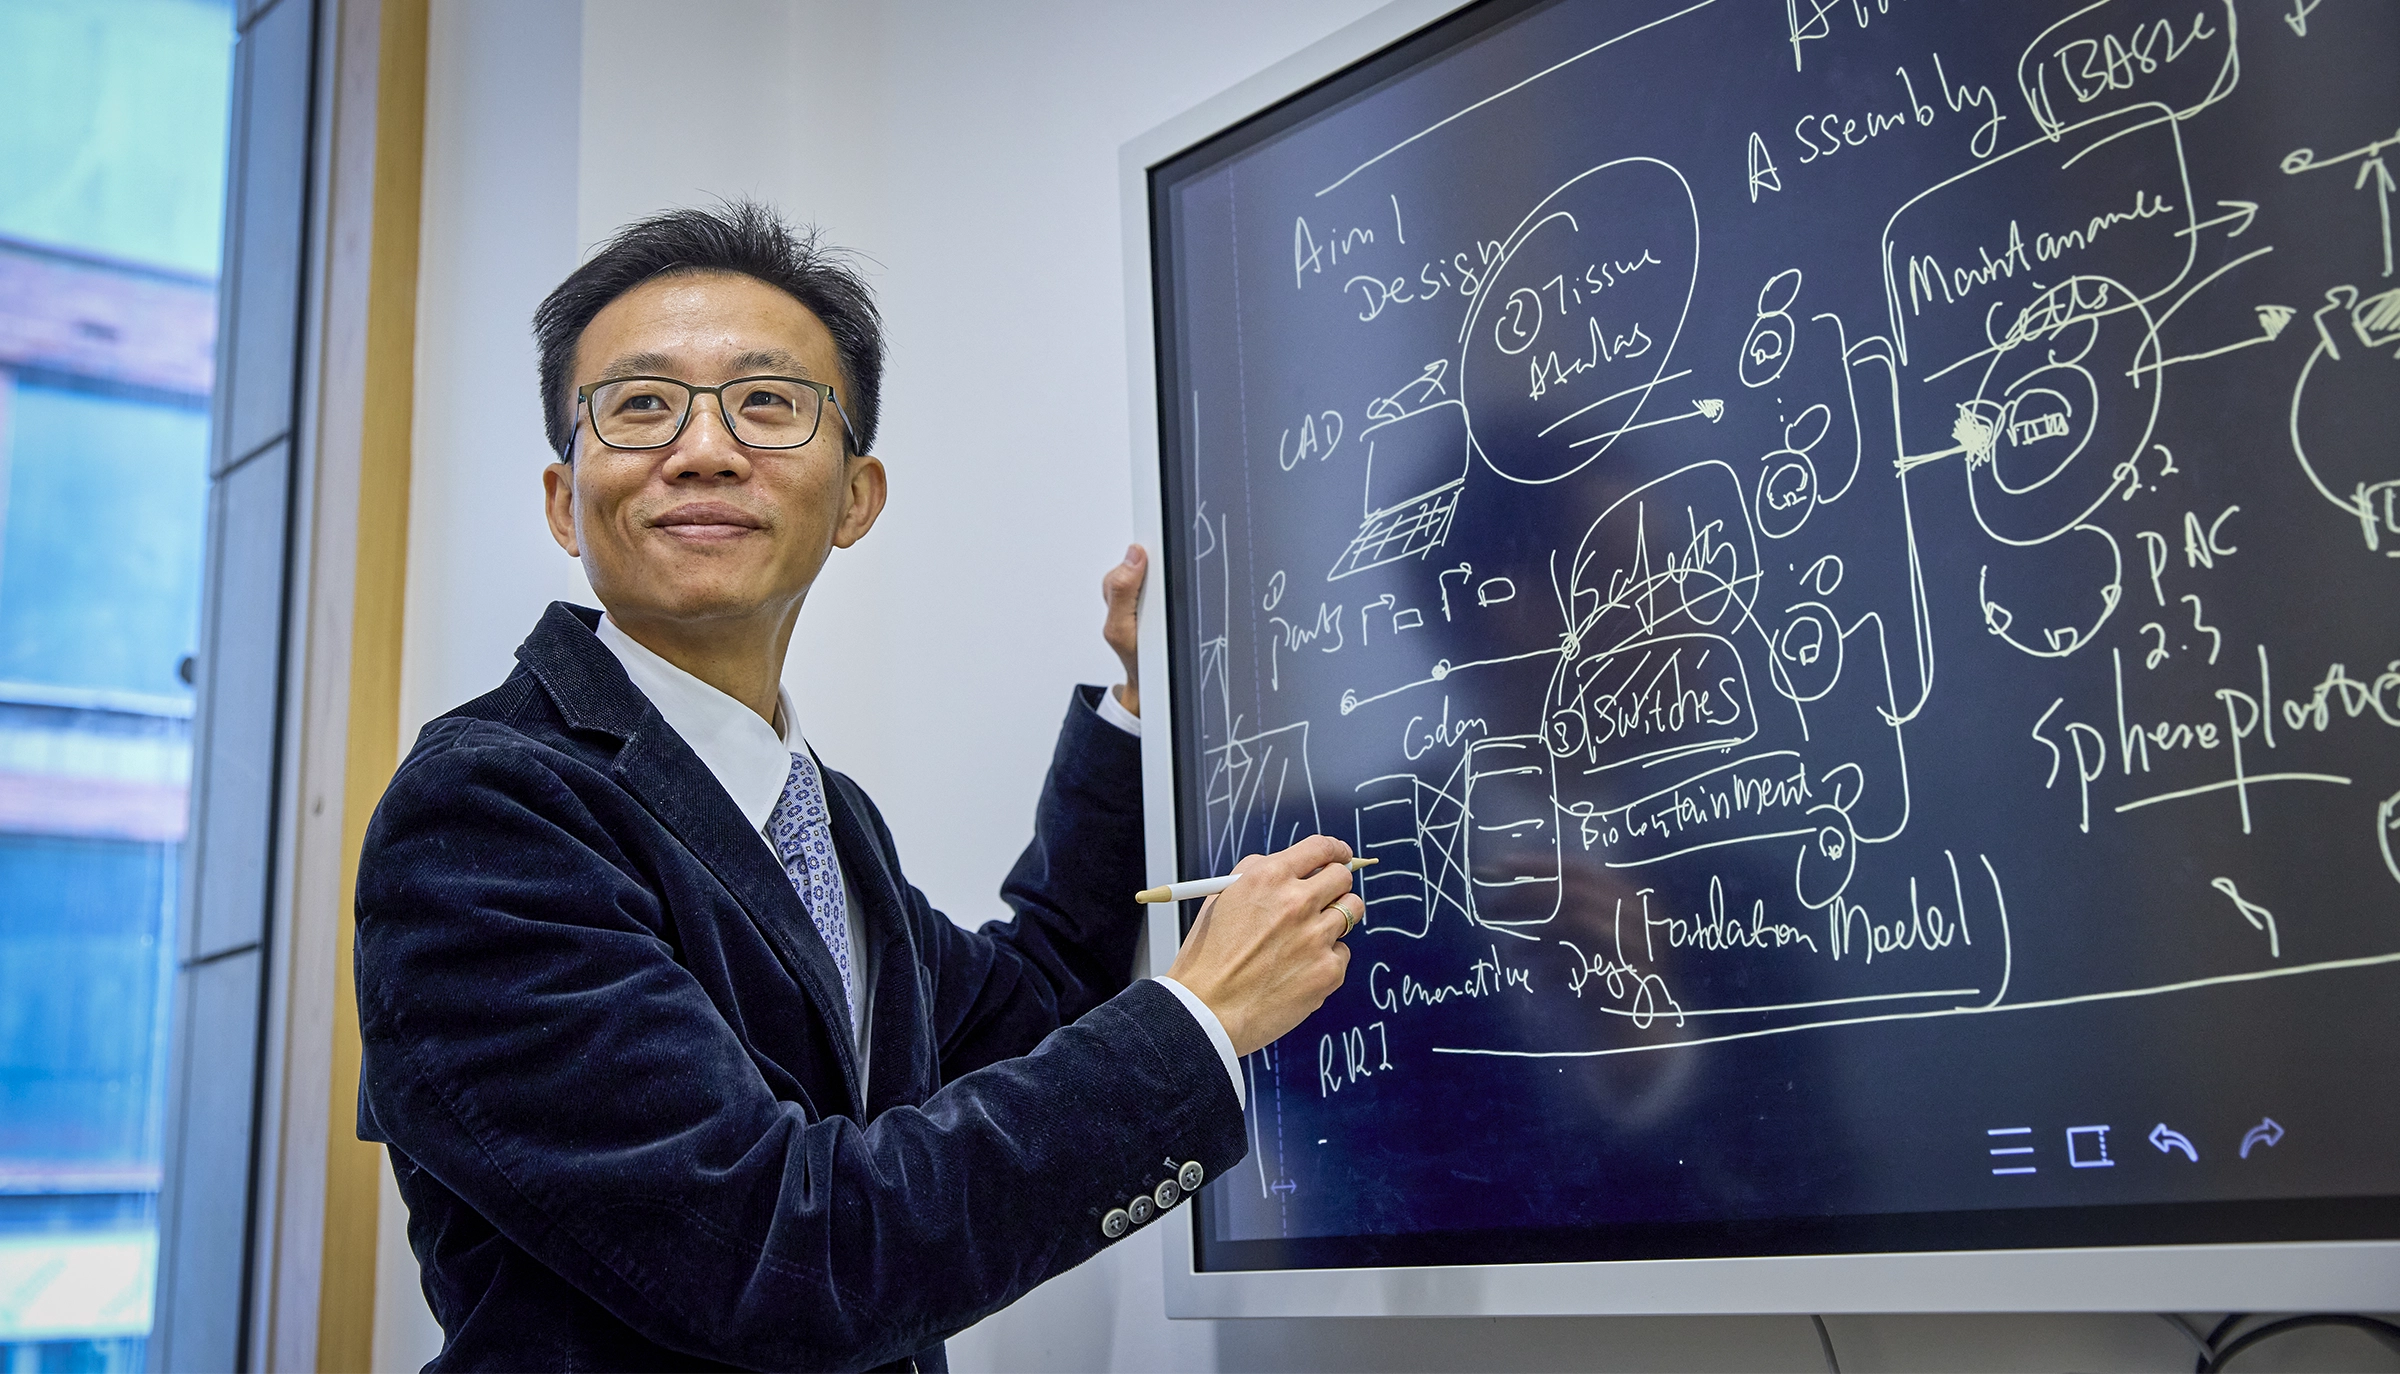 Assembly
Aim 1
Design
② Tissue
Maintanance
CAD
2.2
PAC
2.3
①
Parts
Safety
③ Switches
Codon
Biocontainment
Generative Design
(Foundation Model)
RRI
-